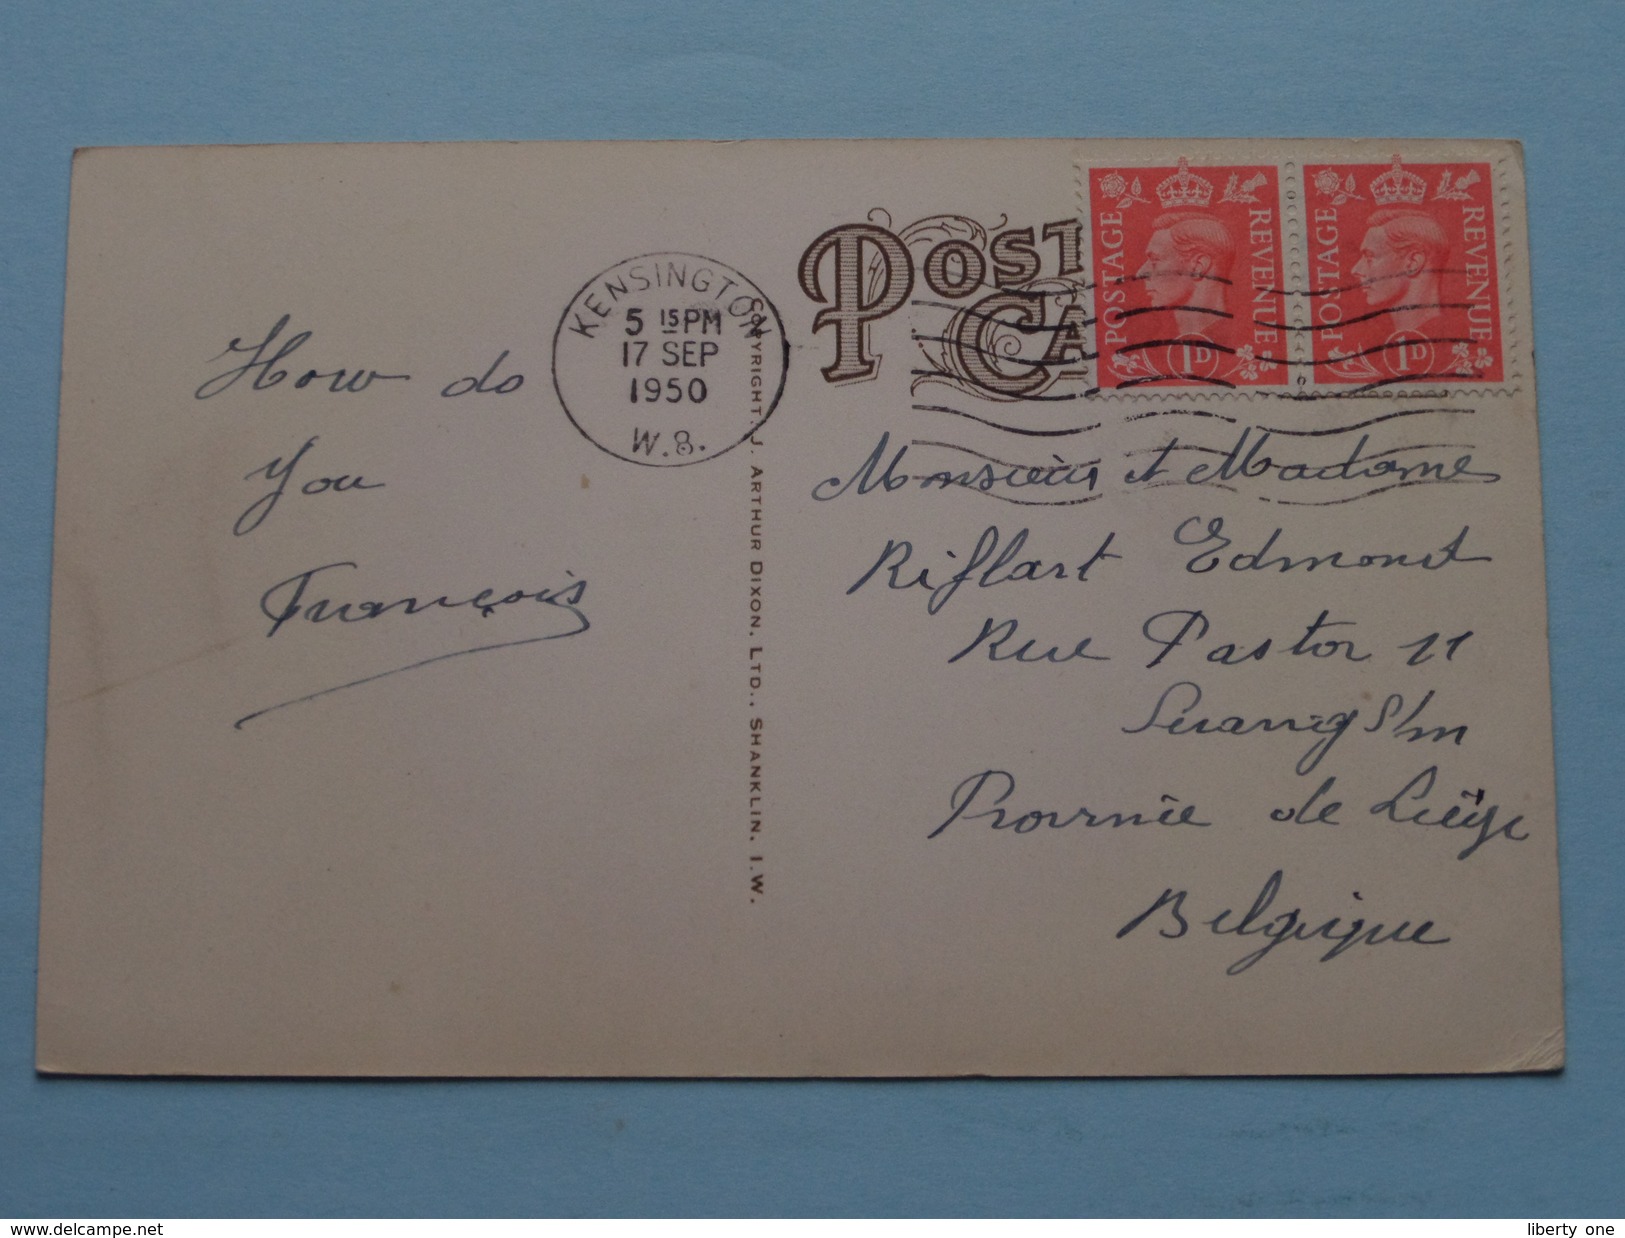 POST
CA
POSTAGE REVENUE 1D
POSTAGE REVENUE 1D
KENSINGTON
5 15 PM
17 SEP
1950
W.8.
How do
you
François
COPYRIGHT. J. ARTHUR DIXON, LTD., SHANKLIN, I.W.
Monsieur et Madame
Riflart Edmond
Rue Pastor 11
Province de Liège
Belgique
Copyright delcampe.net
liberty one